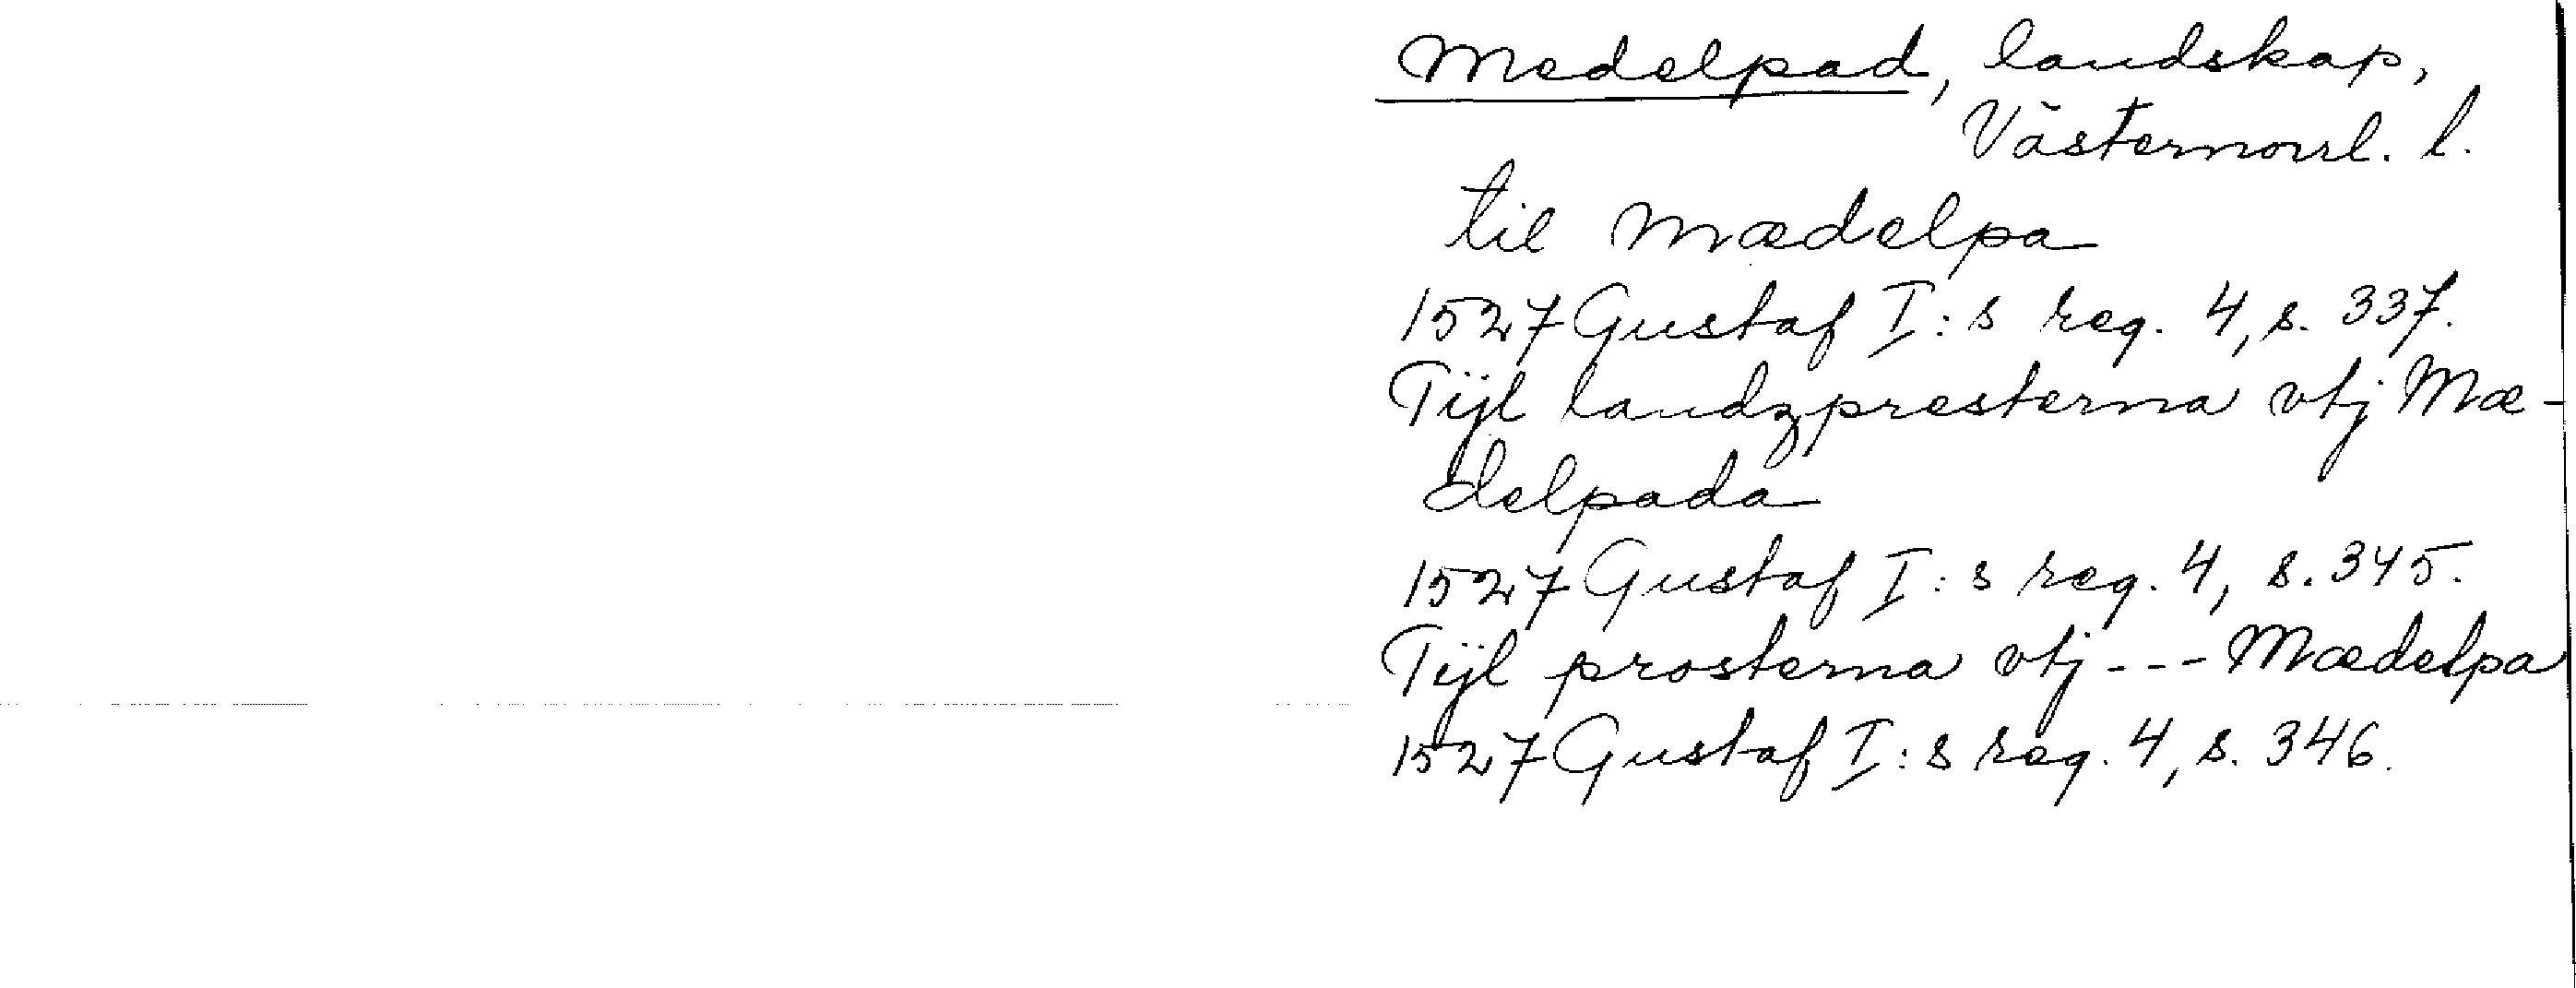 Medelpad, landskap,
Västernorrl. l.
til Mædelpa
1527 Gustaf I:s reg. 4, s. 337.
Tijl landzpresterna vtj Mæ-
delpada
1527 Gustaf I:s reg. 4, s. 345.
Tijl prosterna vtj --- Mædelpa
1527 Gustaf I:s reg. 4, s. 346.